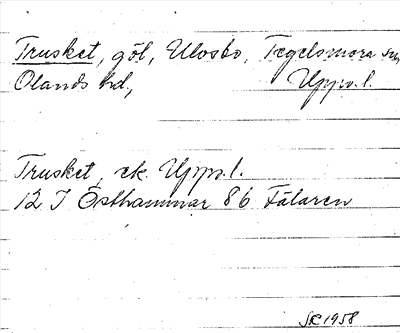 Trusket, göl, Ulvsbo, Tegelsmora sn,
Olands hd, Uppl.
Trusket, ek. Uppl.
12 I Östhammar 8b Fälaren
SK 1958